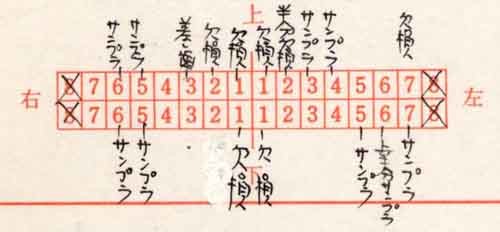 上
サンプラ
サンプラ
差し歯
欠損
欠損
欠損
半欠損
サンプラ
サンプラ
欠損
右
8 7 6 5 4 3 2 1 1 2 3 4 5 6 7 8
8 7 6 5 4 3 2 1 1 2 3 4 5 6 7 8
左
サンプラ
サンプラ
欠損
下
欠損
サンプラ
サンプラ
サンプラ